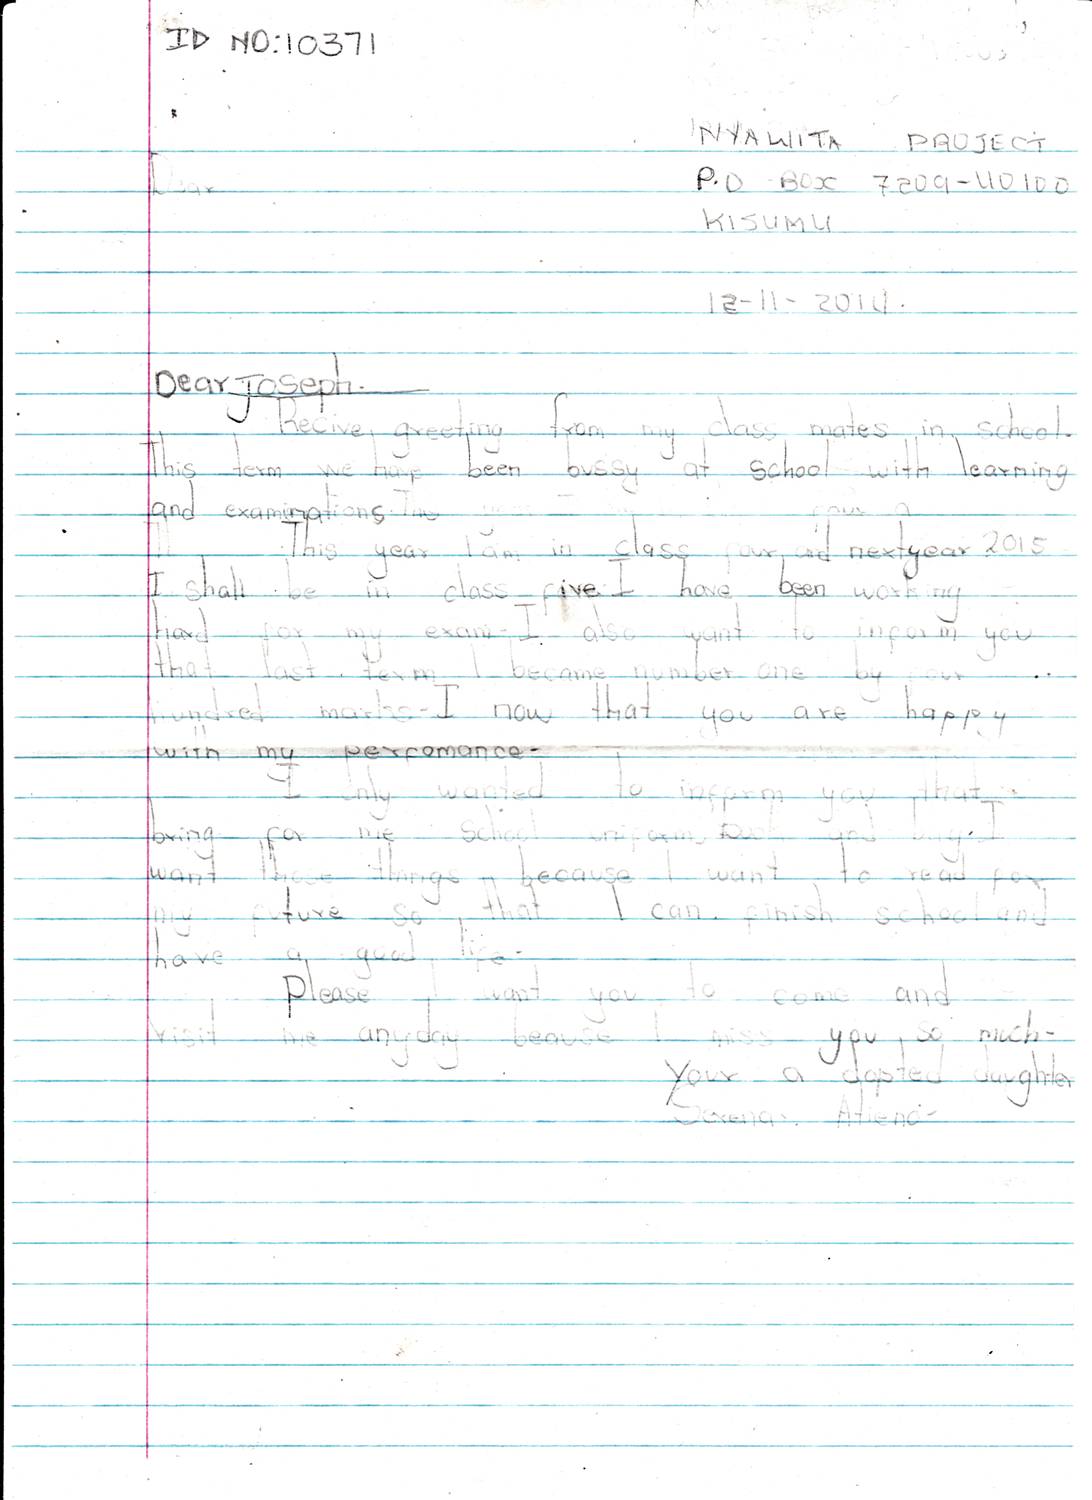 ID NO:10371
NYAWITA PROJECT
Dear
P.O BOX 7209-40100
KISUMU
12-11-2014.
Dear Joseph.
Recive greeting from my class mates in school.
This term we have been bussy at school with learning
and examinations.
This year I am in class four and next year 2015
I shall be in class five. I have been working
hard for my exam-I also want to inform you
that last term I became number one by four
hundred marks-I now that you are happy
with my perfomance-
I only wanted to inform you that
bring for me school uniform, and bag. I
want those things because I want to read for
my future so that I can finish school and
have a good life-
Please I want you to come and
visit me anyday beause I miss you so much-
Your a dopted daughter
Serena Atieno-